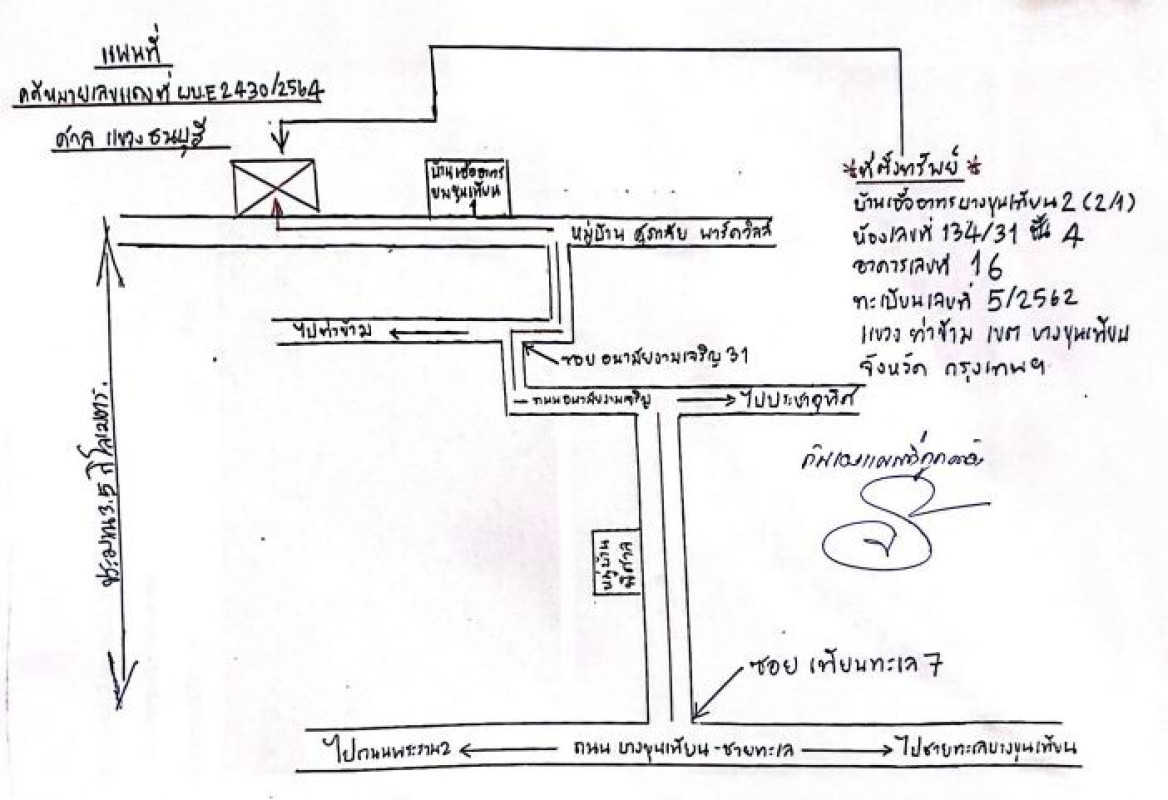 แผนที่
คดีหมายเลขแดงที่ ผบ.E2430/2564
ศาล แขวงธนบุรี
บ้านเอื้ออาทร
บางขุนเทียน
1
หมู่บ้าน ศุภาลัย พาร์ควิลล์
*ที่ตั้งทรัพย์*
บ้านเอื้ออาทรบางขุนเทียน 2 (2/1)
ห้องเลขที่ 134/31 ชั้น 4
อาคารเลขที่ 16
ทะเบียนเลขที่ 5/2562
แขวง ท่าข้าม เขต บางขุนเทียน
จังหวัด กรุงเทพฯ
ไปท่าข้าม
ซอย อนามัยงามเจริญ 31
ถนนอนามัยงามเจริญ
ไปประชาอุทิศ
ประมาณ 3.5 กิโลเมตร.
รับรองแผนที่ถูกต้อง
หมู่บ้าน
ซอย เทียนทะเล 7
ไปถนนพระราม2
ถนน บางขุนเทียน-ชายทะเล
ไปชายทะเลบางขุนเทียน